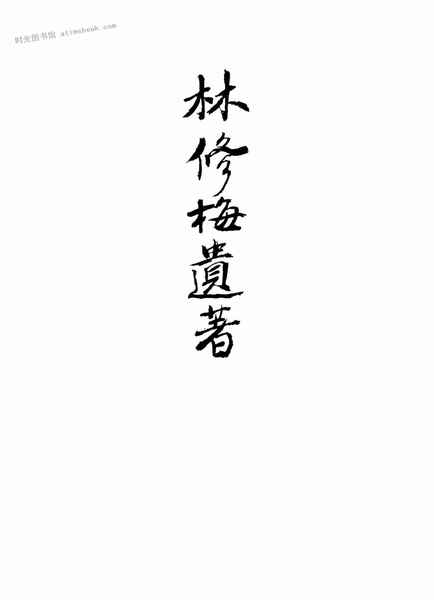 时光图书馆 atimebook.com
林修梅遺著